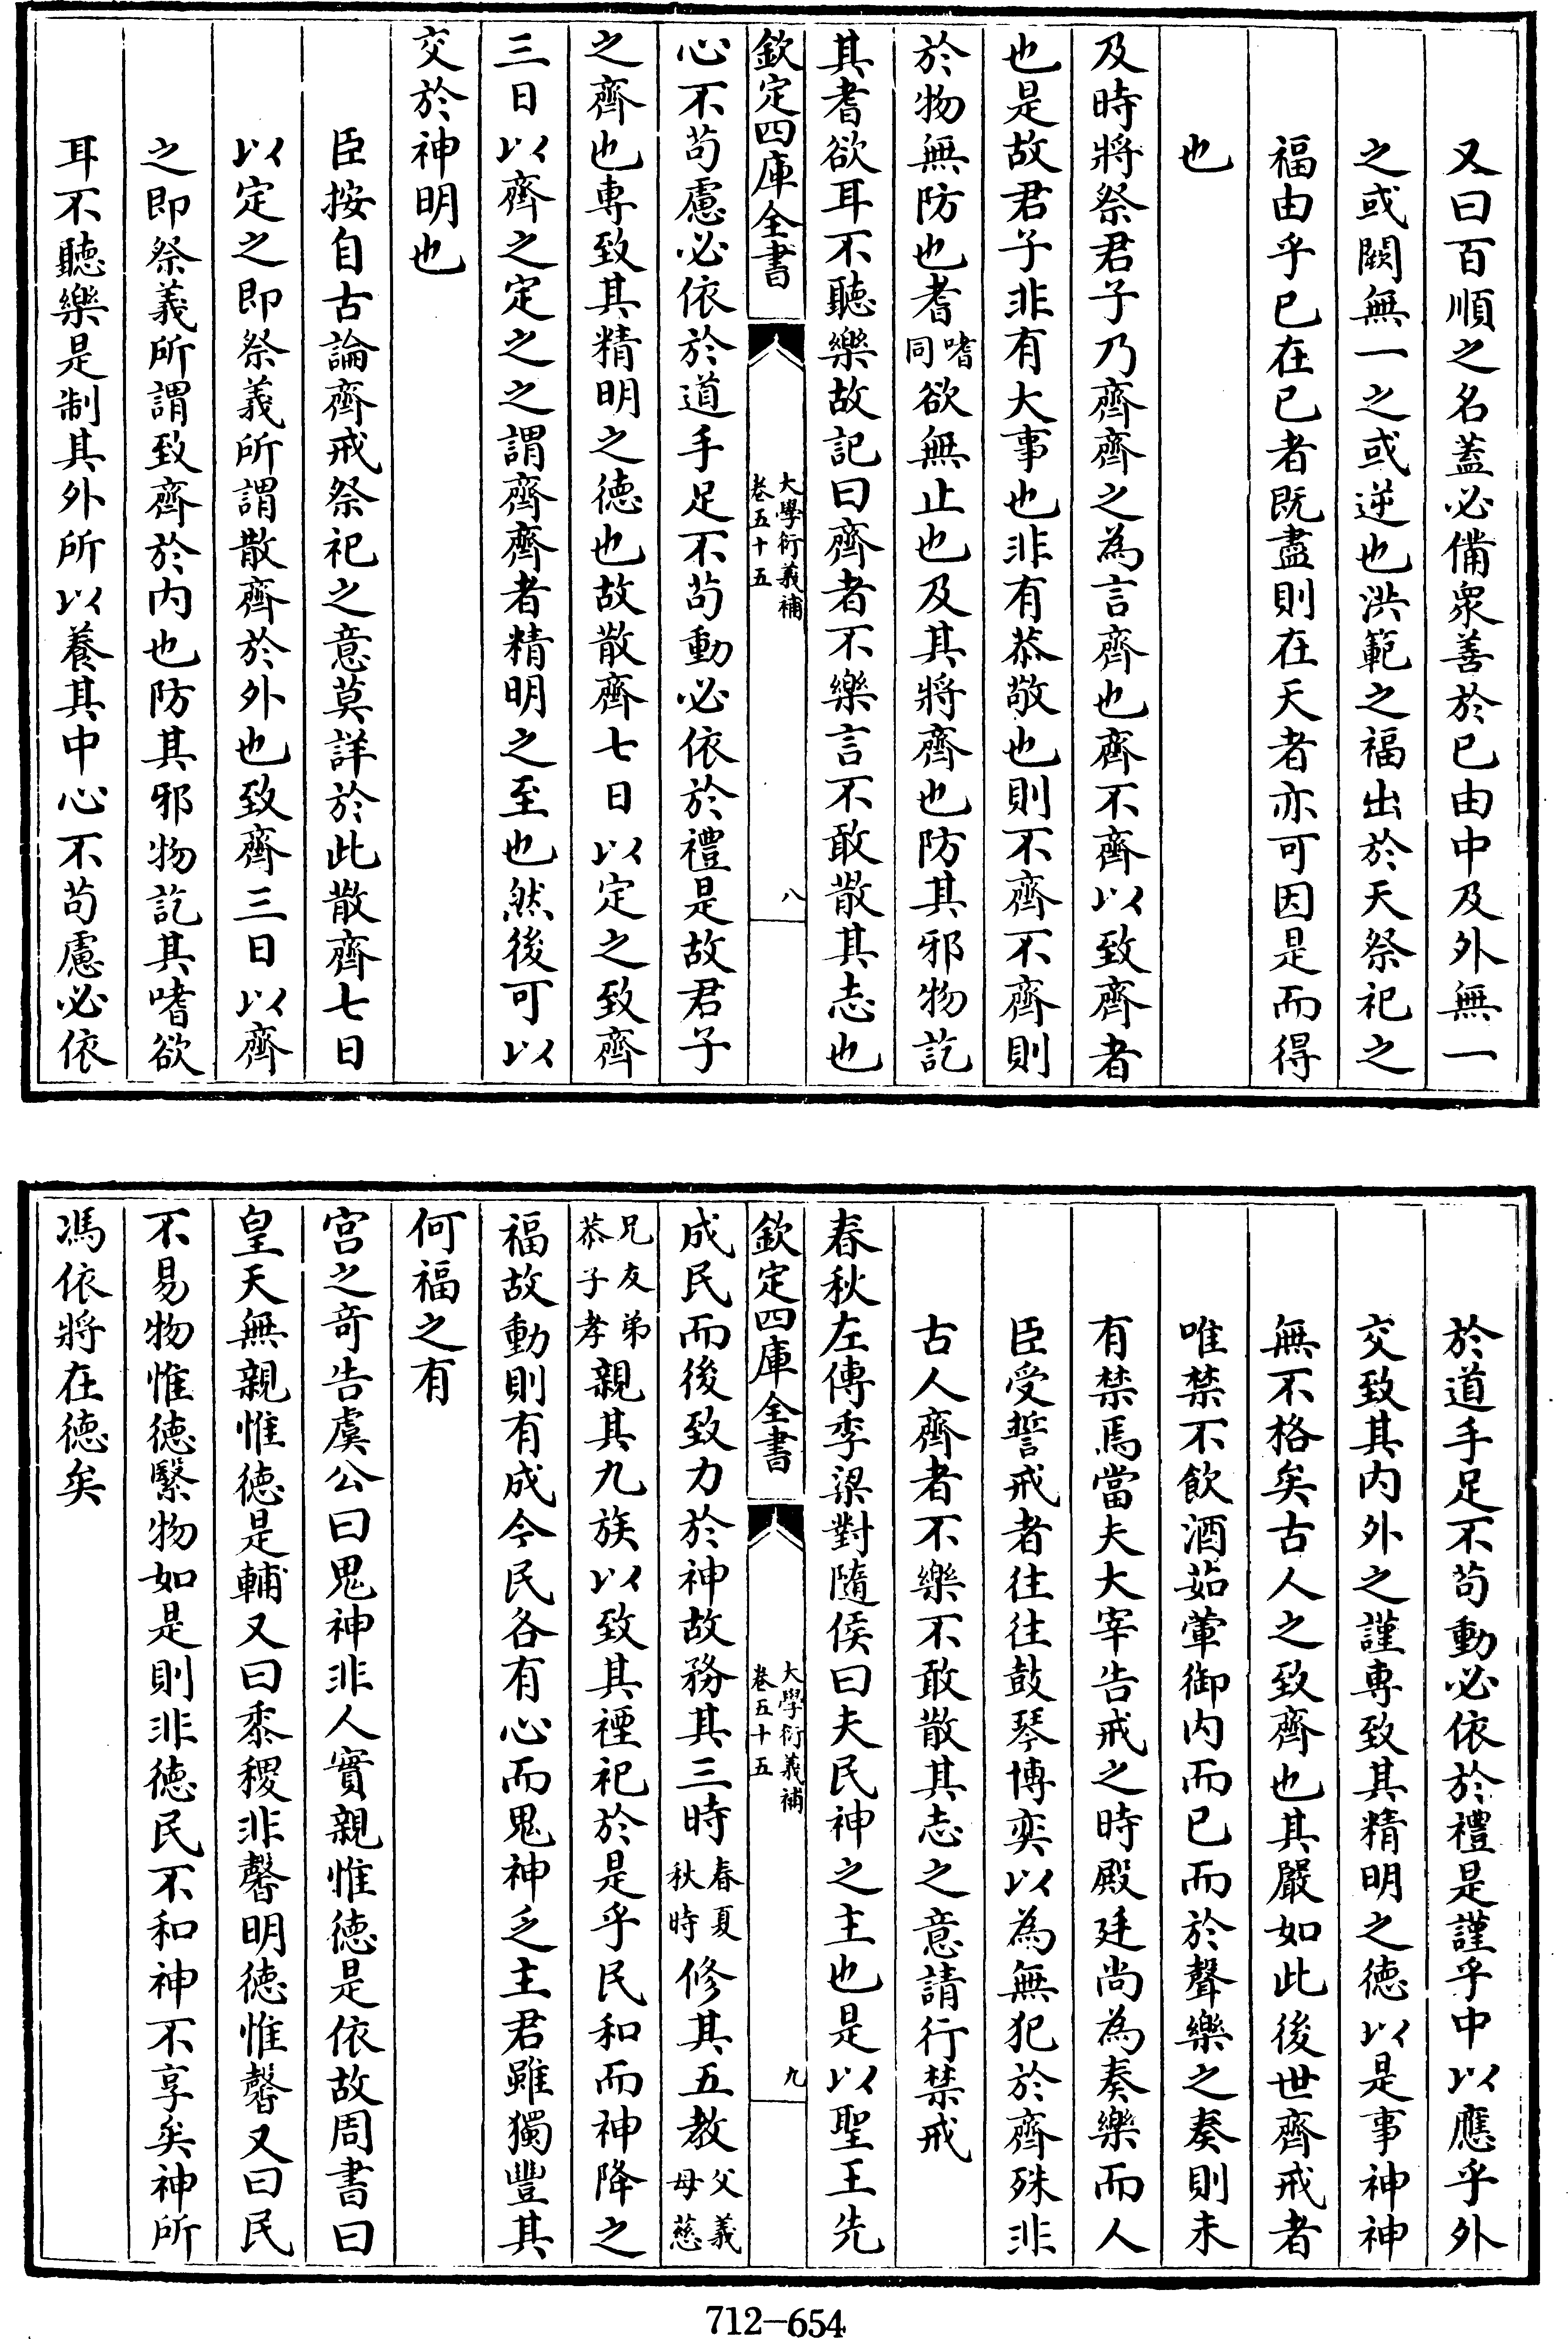 又曰百順之名蓋必備衆善於已由中及外無一
之或闕無一之或逆也洪範之福出於天祭祀之
福由乎已在已者既盡則在天者亦可因是而得
也
及時將祭君子乃齊齊之為言齊也齊不齊以致齊者
也是故君子非有大事也非有恭敬也則不齊不齊則
於物無防也耆嗜同欲無止也及其將齊也防其邪物訖
其耆欲耳不聽樂故記曰齊者不樂言不敢散其志也
欽定四庫全書
大學衍義補
卷五十五
八
心不苟慮必依於道手足不苟動必依於禮是故君子
之齊也專致其精明之德也故散齊七日以定之致齊
三日以齊之定之之謂齊齊者精明之至也然後可以
交於神明也
臣按自古論齊戒祭祀之意莫詳於此散齊七日
以定之即祭義所謂散齊於外也致齊三日以齊
之即祭義所謂致齊於内也防其邪物訖其嗜欲
耳不聽樂是制其外所以養其中心不苟慮必依
於道手足不苟動必依於禮是謹乎中以應乎外
交致其内外之謹專致其精明之德以是事神神
無不格矣古人之致齊也其嚴如此後世齊戒者
唯禁不飲酒茹葷御内而已而於聲樂之奏則未
有禁焉當夫大宰告戒之時殿廷尚為奏樂而人
臣受誓戒者往往鼓琴博奕以為無犯於齊殊非
古人齊者不樂不敢散其志之意請行禁戒
春秋左傳季梁對隨侯曰夫民神之主也是以聖王先
欽定四庫全書
大學衍義補
卷五十五
九
成民而後致力於神故務其三時春夏秋時修其五教父義母慈
兄友弟恭子孝親其九族以致其禋祀於是乎民和而神降之
福故動則有成今民各有心而鬼神乏主君雖獨豐其
何福之有
宫之竒告虞公曰鬼神非人實親惟德是依故周書曰
皇天無親惟德是輔又曰黍稷非馨明德惟馨又曰民
不易物惟德繄物如是則非德民不和神不享矣神所
馮依將在德矣
712-654